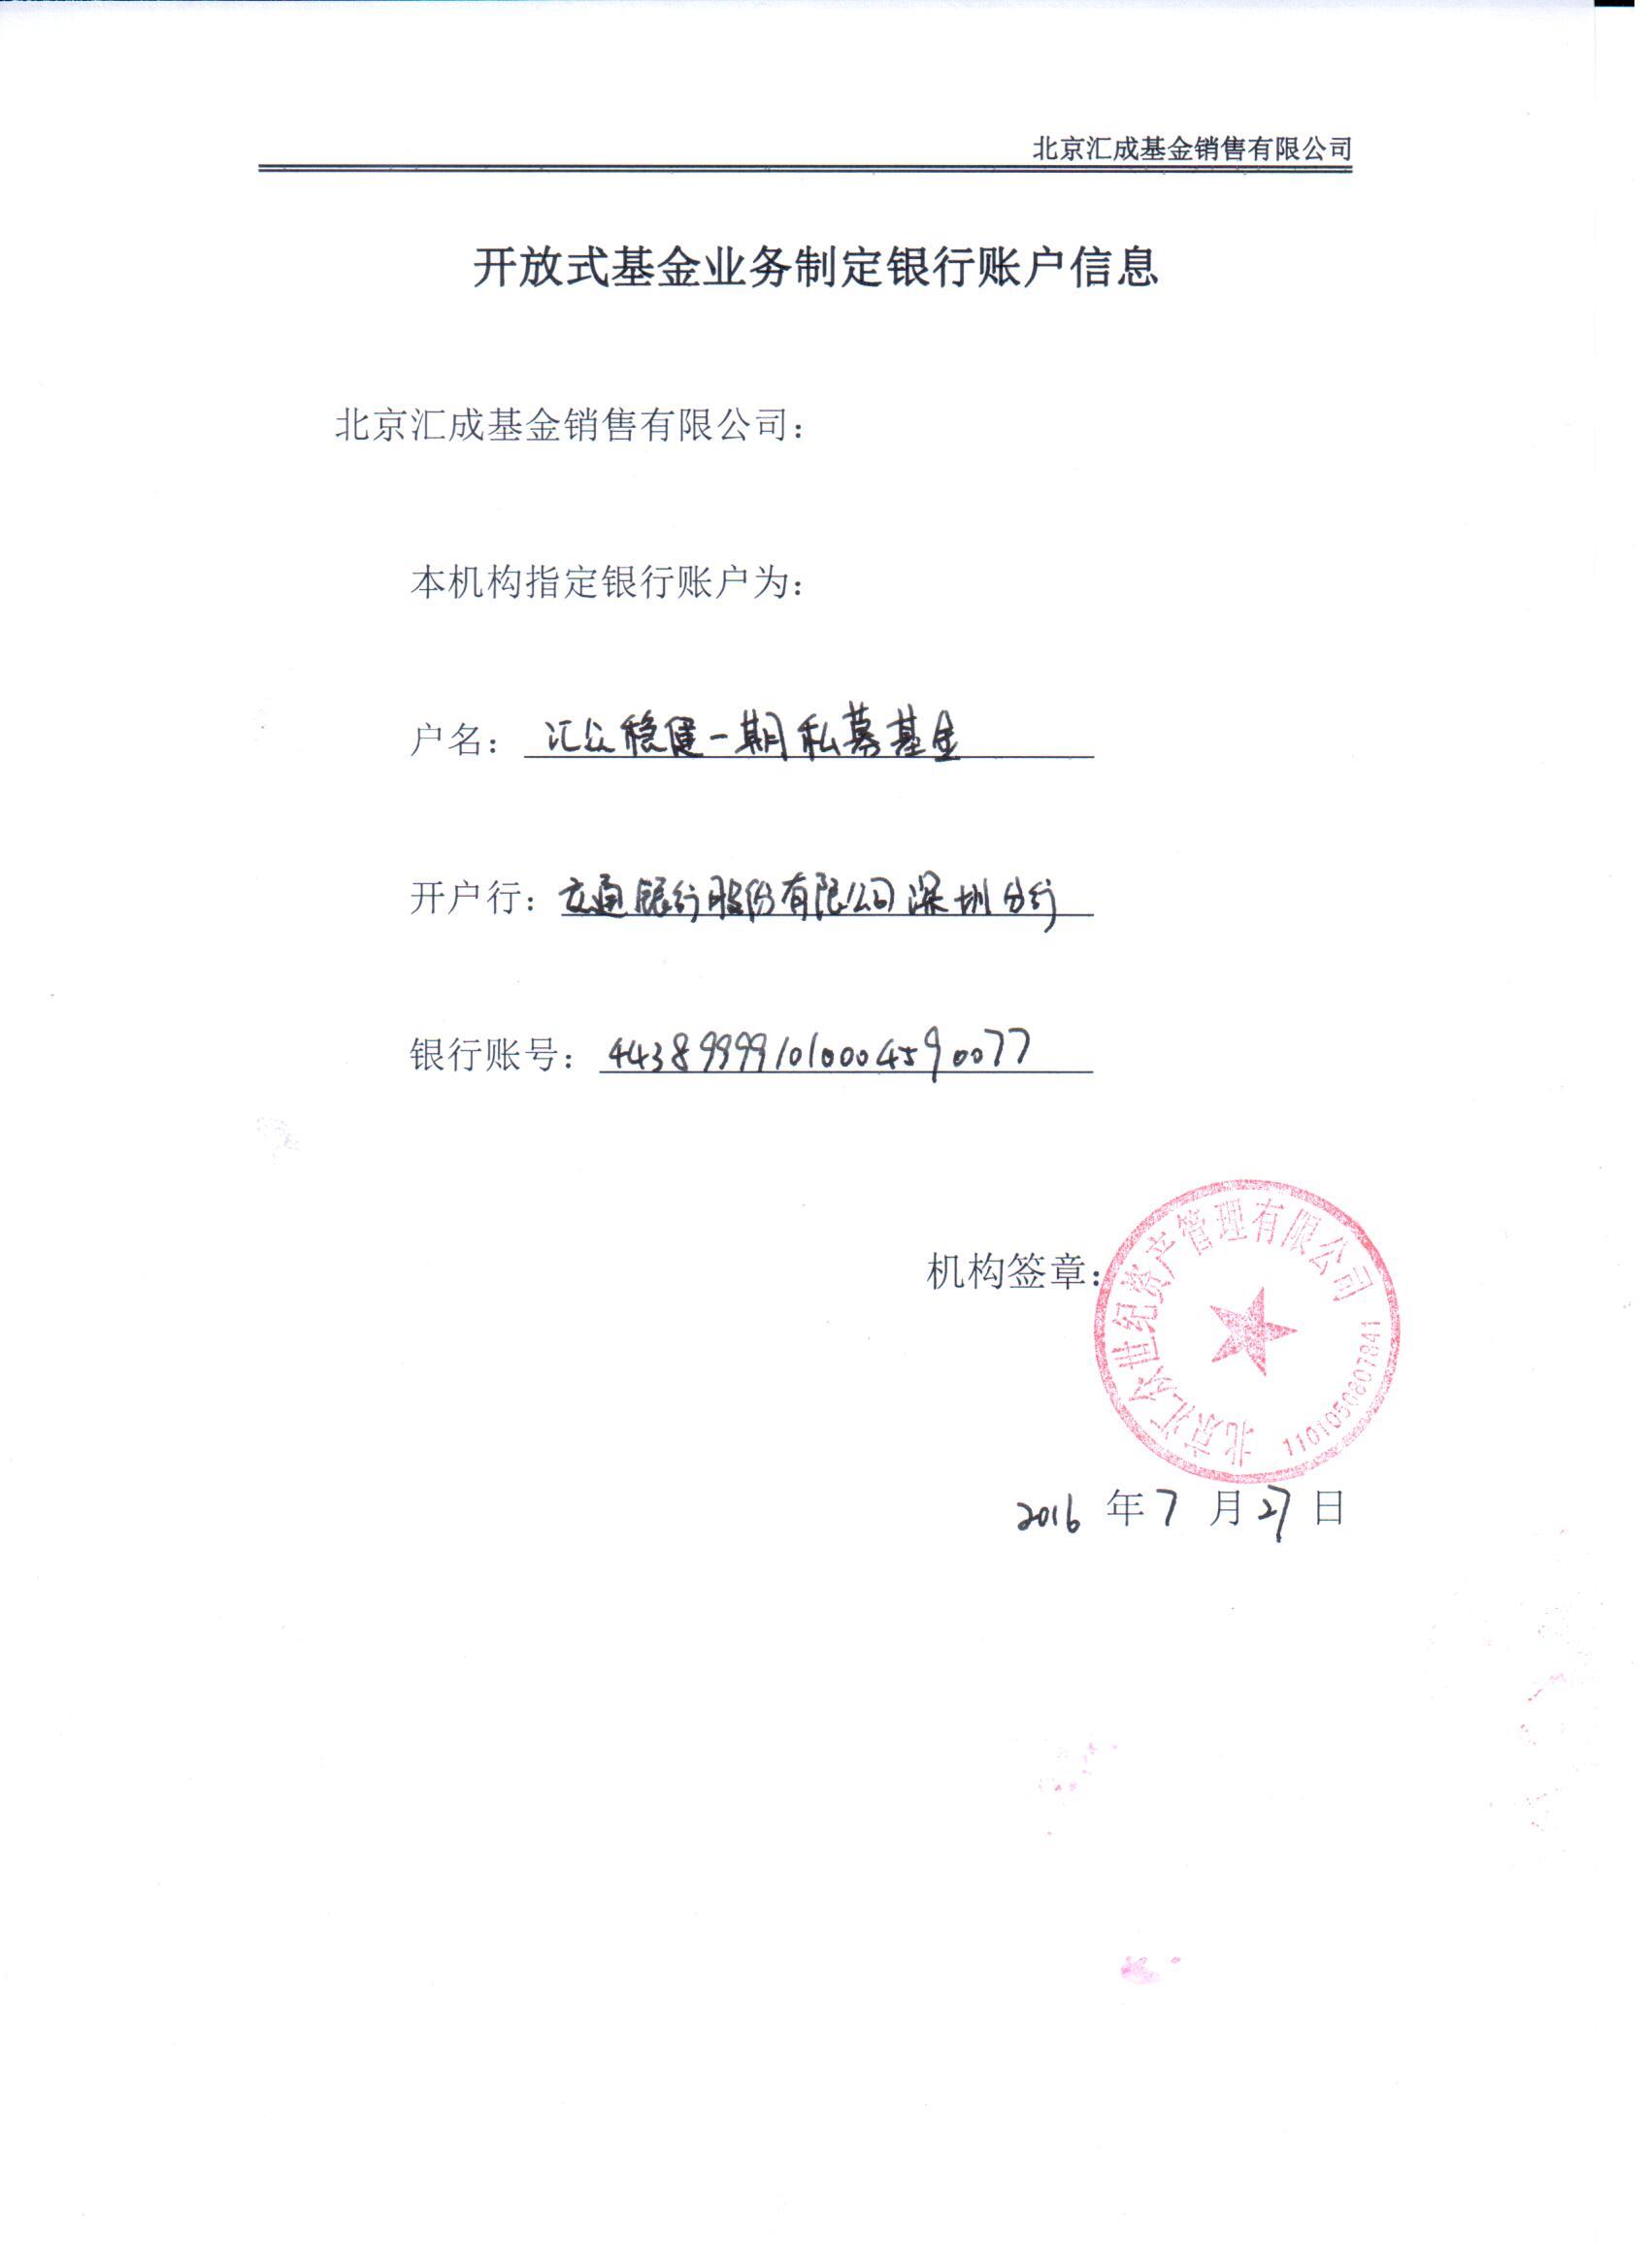 北京汇成基金销售有限公司
开放式基金业务制定银行账户信息
北京汇成基金销售有限公司：
本机构指定银行账户为：
户名：汇众稳健一期私募基金
开户行：交通银行股份有限公司深圳分行
银行账号：443899991010004590077
机构签章：
北京汇众世纪资产管理有限公司
1101050807841
2016 年 7 月 27 日